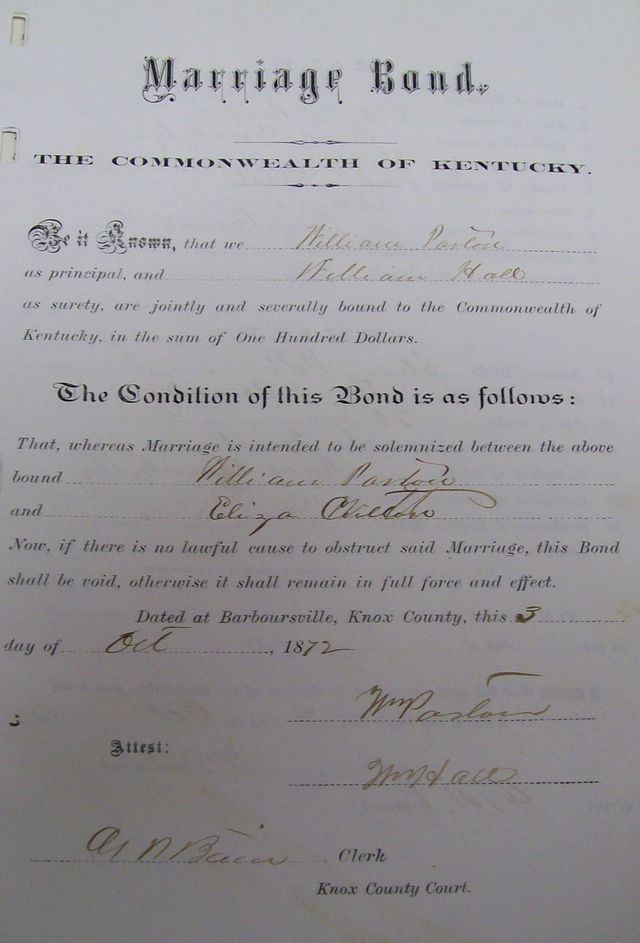 Marriage Bond.
THE COMMONWEALTH OF KENTUCKY.
Be it Known, that we William Paxton
as principal, and William Hall
as surety, are jointly and severally bound to the Commonwealth of
Kentucky, in the sum of One Hundred Dollars.
The Condition of this Bond is as follows:
That, whereas Marriage is intended to be solemnized between the above
bound William Paxton
and Eliza
Now, if there is no lawful cause to obstruct said Marriage, this Bond
shall be void, otherwise it shall remain in full force and effect.
Dated at Barboursville, Knox County, this 3
day of Oct, 1872
Wm Paxton
Attest:
Wm Hall
Clerk
Knox County Court.